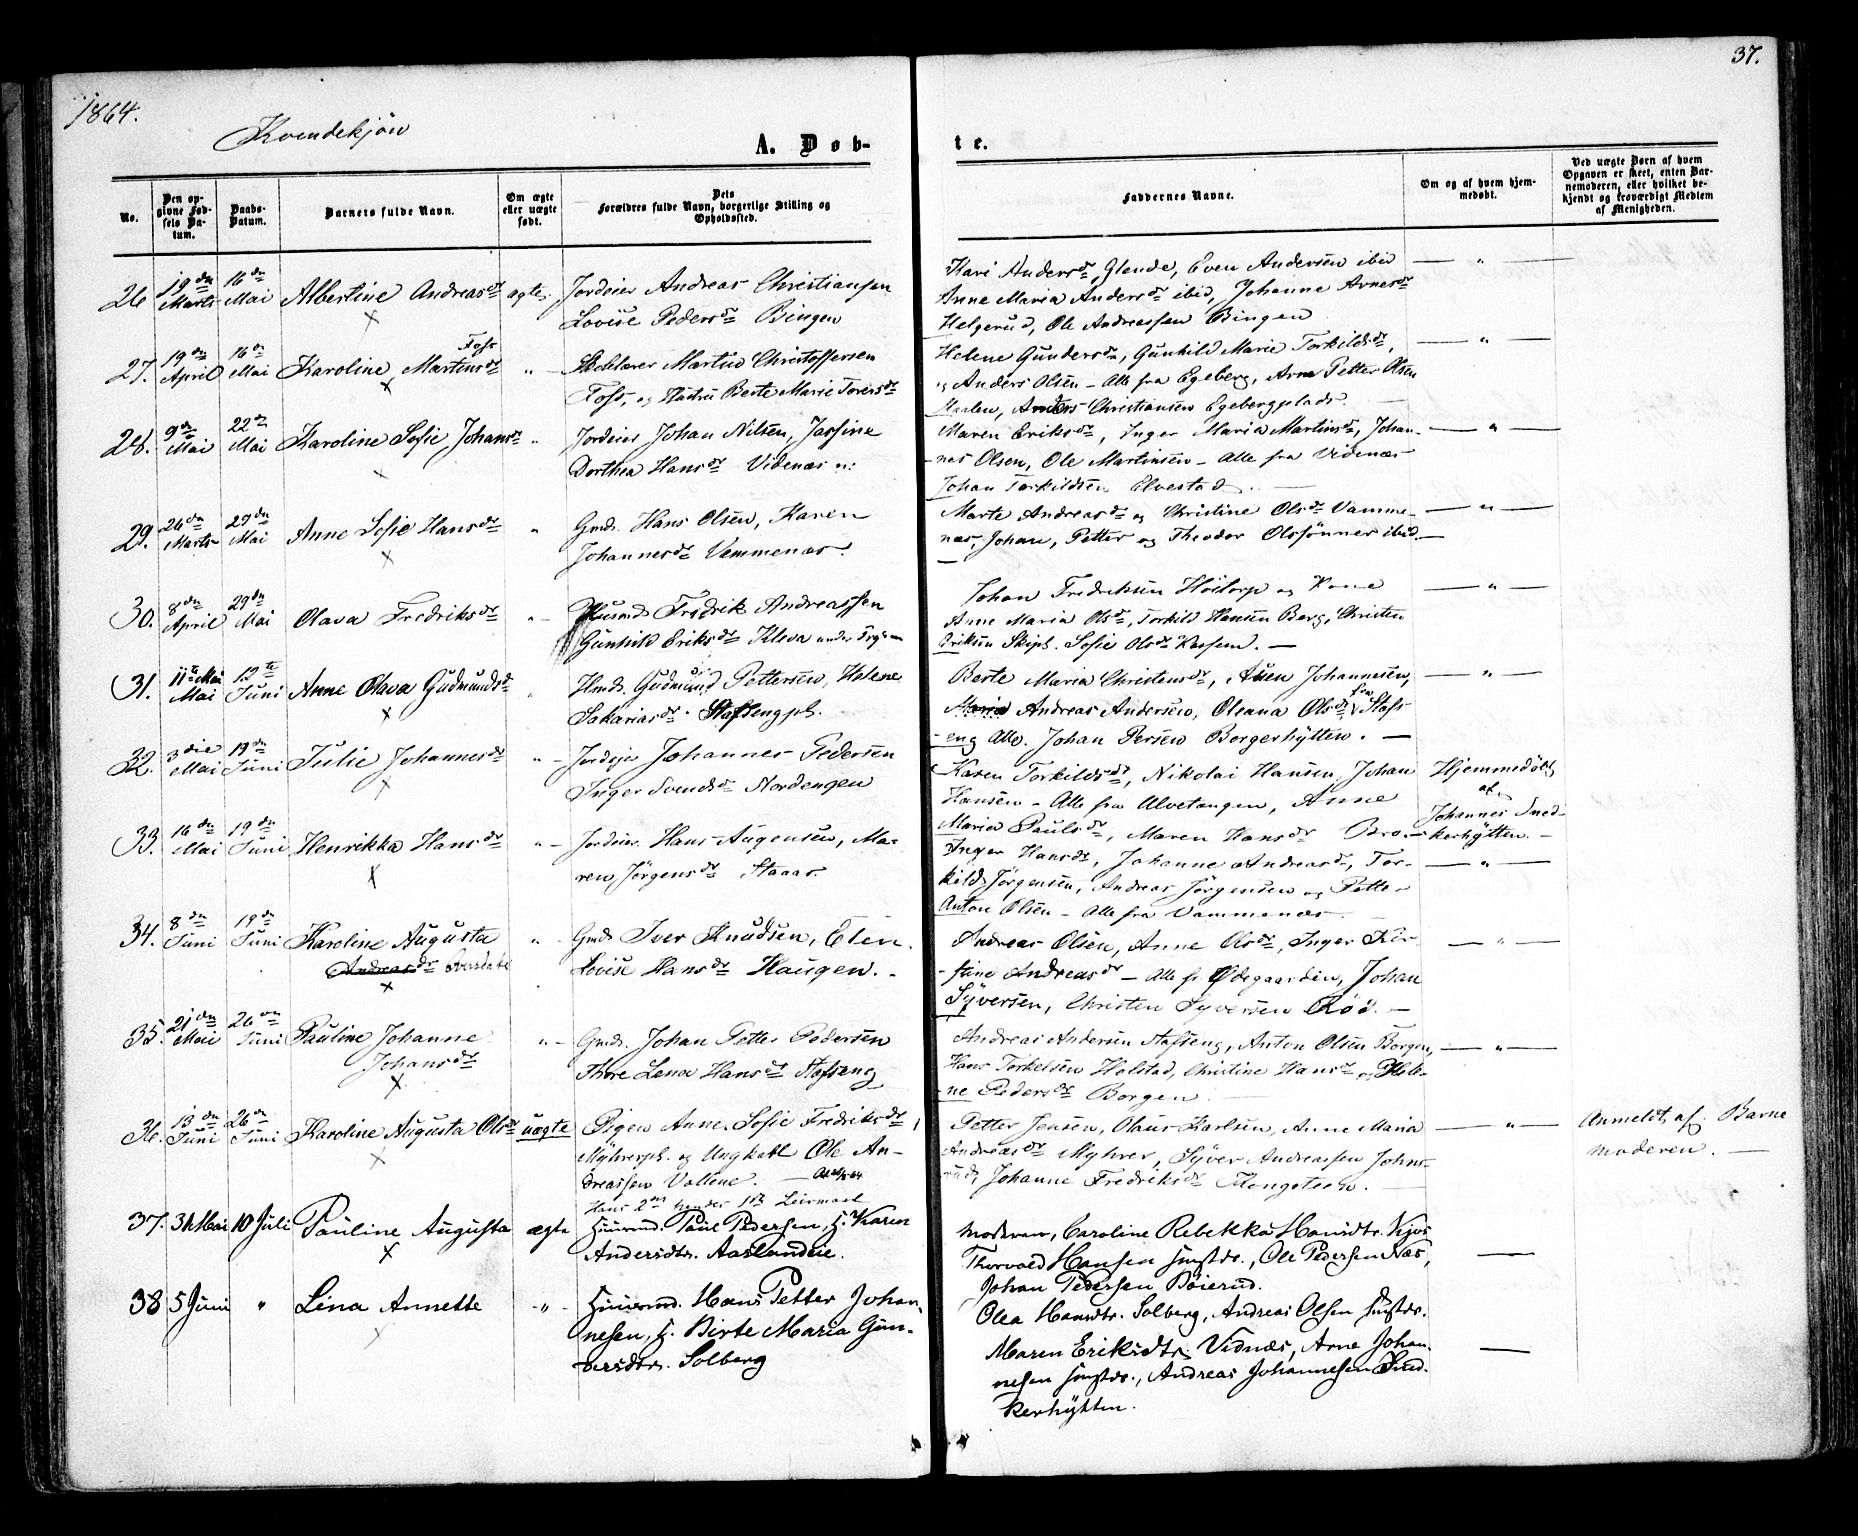 1864.
37.
Kvindekjön
A. Døb-
te.
No.
Den op-
givne Fød-
sels Da-
tum.
Daabs-
Datum.
Barnets fulde Navn.
Om ægte
eller uægte
født.
Dets
Forældres fulde Navn, borgerlige Stilling og
Opholdssted.
Faddernes Navne.
Om og af hvem hjem-
medøbt.
Ved uægte Børn af hvem
Opgaven er skeet, enten Bar-
nemoderen, eller hvilket be-
kjendt og troværdigt Medlem
af Menigheden.
26 19de Marts 16de Mai Albertine Andreasdr ægte Jordeier Andreas Christiansen
Lovise Pedersdr Bingen
Kari Andersdr Glende, Even Andersen ibid — " —
Anne Maria Andersdr ibid, Johanne Arnesdr
Helgerud, Ole Andreassen Bingen
27. 19de April 16de Mai Karoline Martinsdr Foss " - Skolelærer Martin Christoffersen
Foss, og Hustru Berte Marie Torersdr
Helene Gundersdr, Gunhild Marie Torkildsdr, — " —
og Anders Olsen - Alle fra Egeberg, Arne Petter Olsen
Anders Christiansen Egebergplads.
28. 9de Mai 22de Mai Karoline Sofie Johansdr " Jordeier Johan Nilsen, Jassine
Dorthea Hansdr Videnæs n:
Maren Eriksdr, Inger Maria Martinsdr, Johan- — " —
nes Olsen, Ole Martinsen - Alle fra Videnæs
Johan Torkildsen Elvestad. —
29. 26de Marts 29de Mai Anne Sofie Hansdr " Gmd. Hans Olsen, Karen
Johannesdr Vammenæs.
Marte Andreasdr og Christine Olsdr Vamme- — " —
næs, Johan, Petter og Theodor Olssønner ibid. —
30. 8de April 29de Mai Olava Fredriksdr " - Huusmd. Fredrik Andreassen
Gunhild Eriksdr Kleva under
Johan Fredriksen Høitorp og Kone — " —
Anne Maria Olsdr, Torkild Hansen Berg, Christen
Eriksen Skipt. Sofie Olsdr. —
31. 11te Mai Mai 12te Juni Anne Olava Gudmundsdr " Hmd. Gudmund Pettersen, Helene
Sakariasdr. Stofsengpl.
Berte Maria Christensdr, Aven Johannesen, — " —
Andreas Andersen, Oleana Olsdr fra Stofs-
eng Alle. Johan Persen Borgerhytten. —
32. 3die Mai 19de Juni Julie Johannesdr " - Jordejer Johannes Pedersen
Inger Svendsdr Nordengen
Karen Torkildsdr, Nikolai Hansen, Johan Hjemmedøbt
Hansen - Alle fra Alvetangen, Anne af
Maria Paulsdr, Maren Hansdr Bro. — Johannes Sned-
kerhytten. —
33. 16de Mai 19de Juni Henrikka Hansdr " - Jordeier Hans Augensen, Ma-
ren Jörgensdr Haaas.
Inger Hansdr, Johanne Andreasdr, Tor- — " —
kild Jörgensen, Andreas Jörgensen og Petter
Anton Olsen - Alle fra Vammenæs.
34. 8de Juni 19de Juni Karoline Augusta " - Gmd. Iver Knudsen, Elen
Andreasdr
Lovise Hansdr Haugen. -
Andreas Olsen, Anne Olsdr, Inger Kir- — " —
stine Andreasdr - Alle fr Ødegaarden, Johan
Syversen, Christen Syversen Röd. —
35. 21de Mai 26de Juni Pauline Johanne " - Gmd. Johan Petter Pedersen
Johansdr
Thore Lena Hansdr Stofseng
Andreas Andersen Stofseng, Anton Olsen Borgen, — " —
Hans Torkelsen Holstad, Christine Hansdr og Hele-
ne Pedersdr Borgen.
36. 13de Juni 26de Juni Karoline Augusta Olsdr uægte Pigen Anne Sofie Fredriksdr,
Myhrerpl. og Ungkarl Ole An-
dreassen Vollene.
Hans 2den hendes 1ste Leiermaal
Petter Jensen, Olaus Karlsen, Anne Maria — " — Anmeldt af Barne
Andreasdr Myhrer, Syver Andreassen Johns- moderen. —
rud, Johanne Fredriksdr Kongsteen. —
37. 31 Mai 10 Juli Pauline Augusta ægte Huusmd. Paul Pedersen, H. Karen
Andersdtr. Aaslandeie.
Moderen, Caroline Rebekka Hansdtr.
Thorvald Hansen, Ole Pedersen Næs, —
Johan Pedersen Böierud.
38 5 Juni " Lina Annette -"- Huusmd. Hans Petter Johan-
nesen, H. Birte Maria Gun-
dersdtr. Solberg
Olea Hansdtr. Solberg, Andreas Olsen
Maren Eriksdtr. Vidnæs, Arne Johan- —
nesen, Andreas Johannesen Sned-
kerhytten.